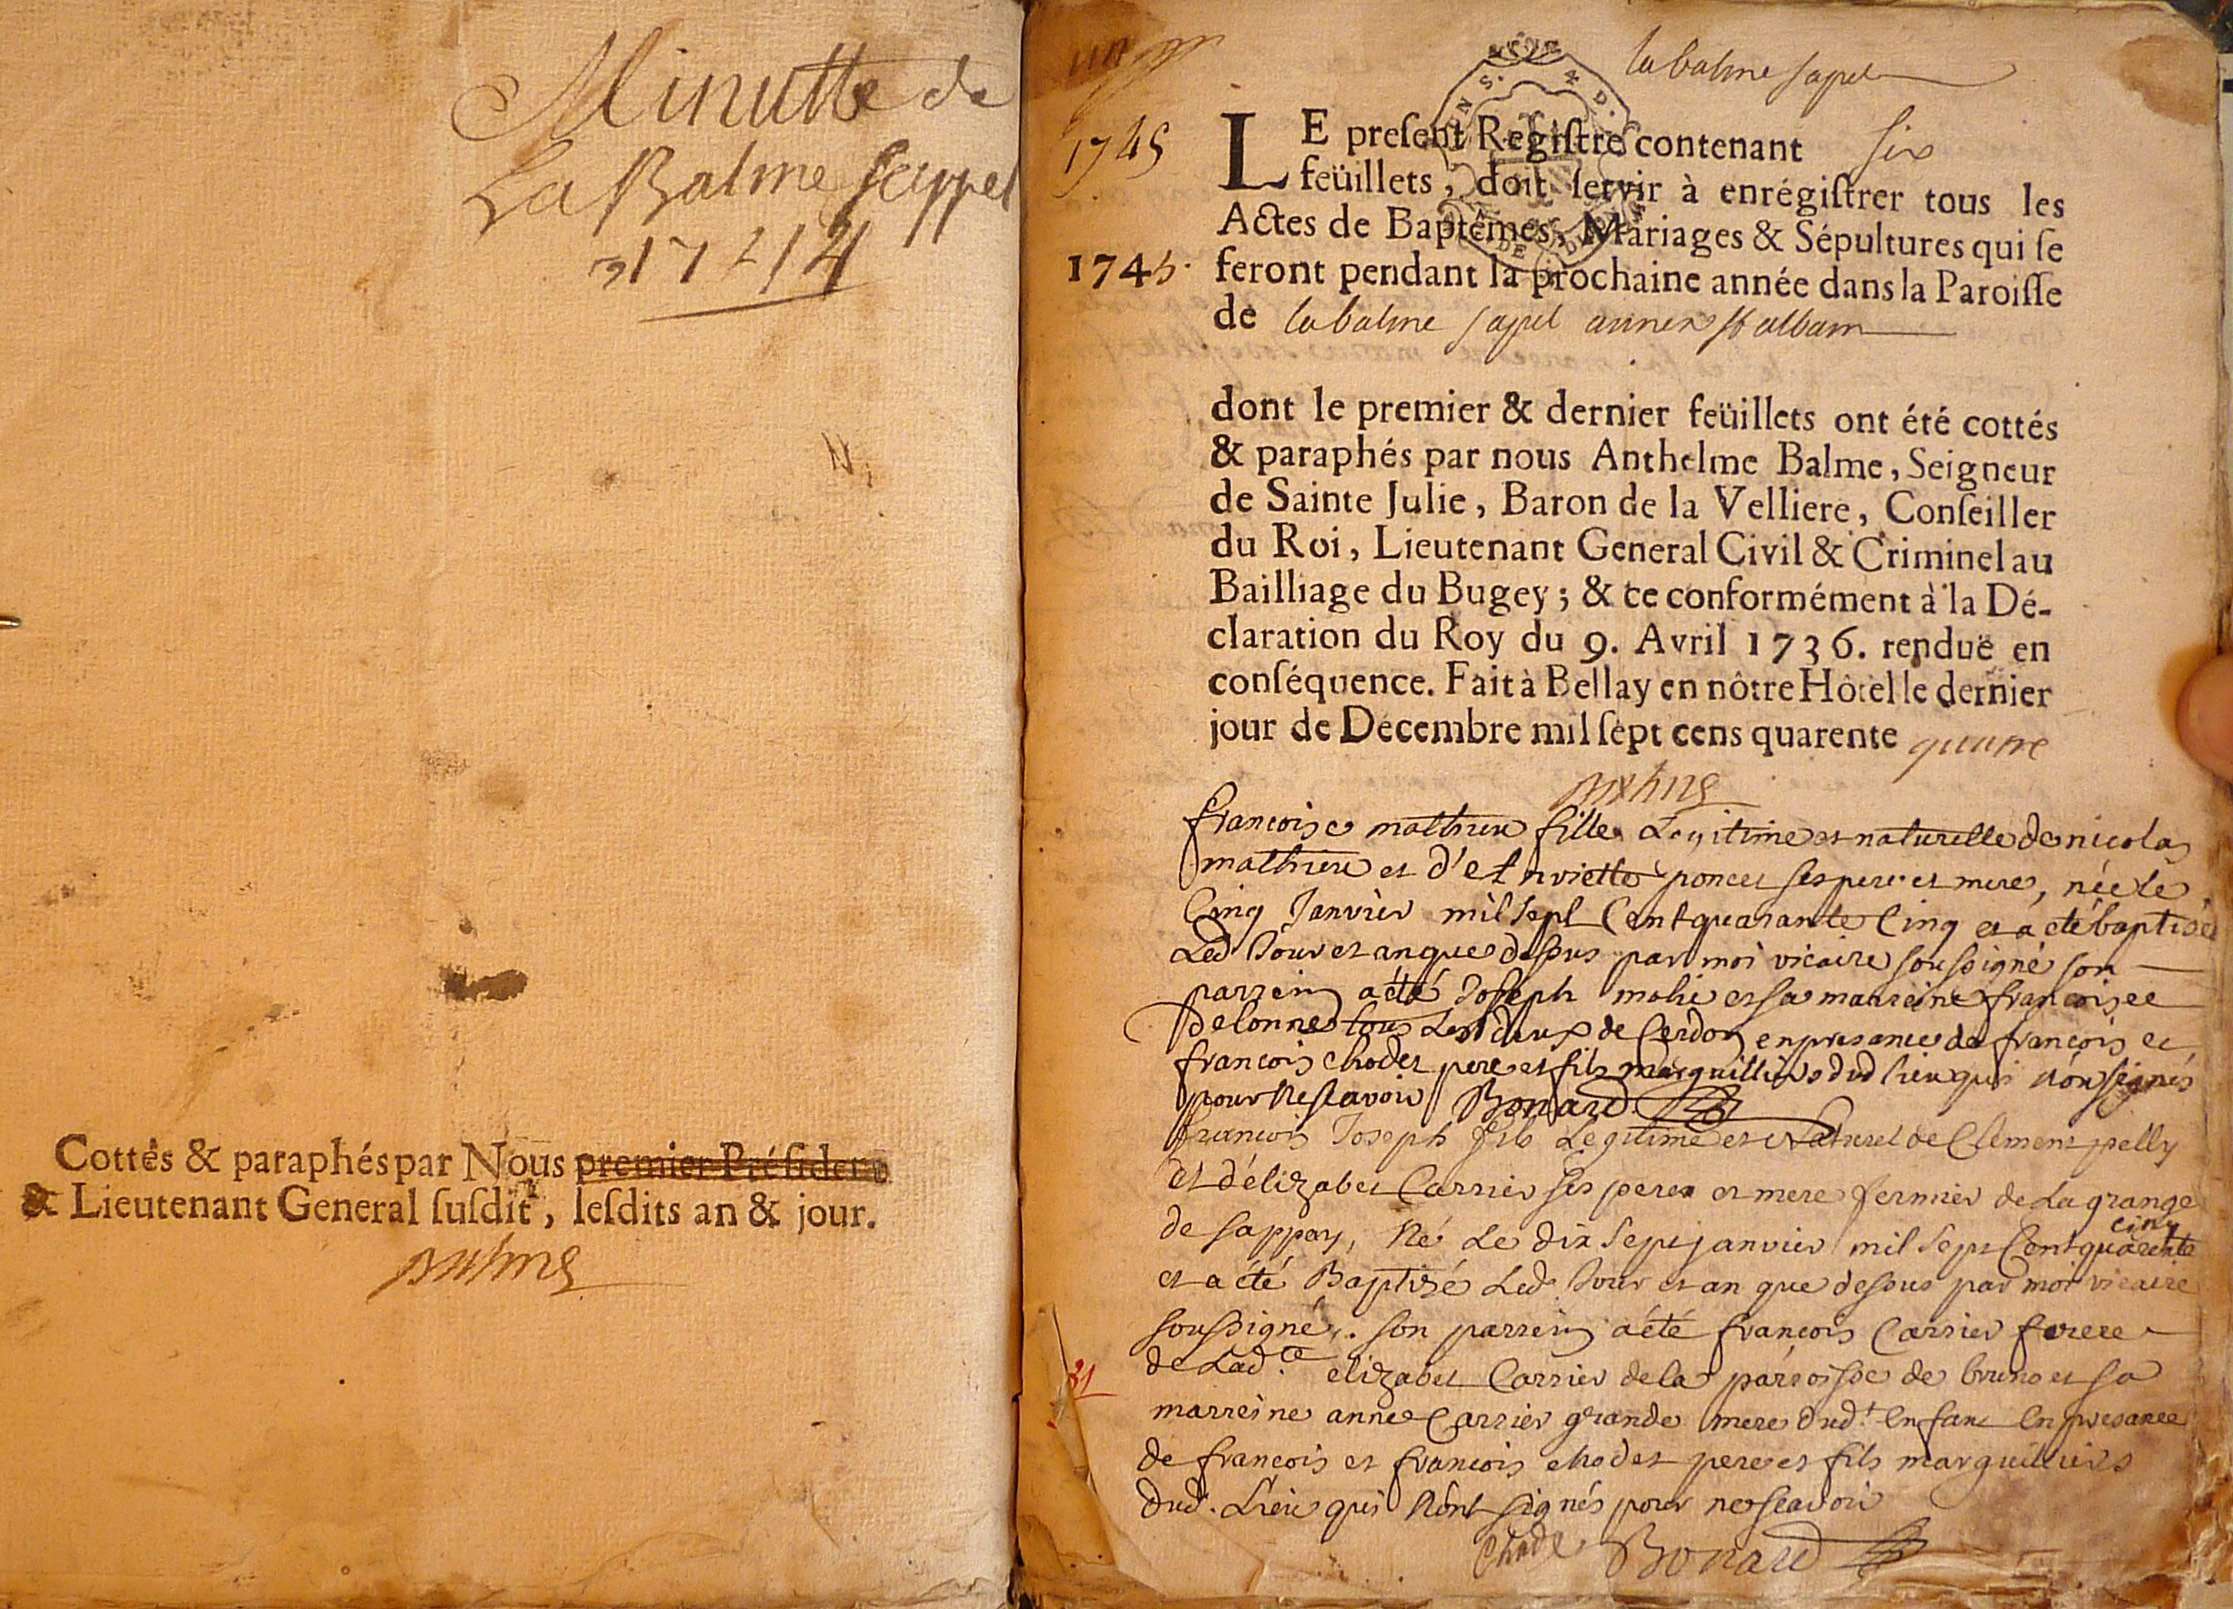 Minutte de
La Balme Sappel
1744
Cottés & paraphés par Nous premier Préſident
& Lieutenant General ſuſdit, leſdits an & jour.
Balme
la balme sapel
1745
LE preſent Regiſtre contenant six
feüillets, doit ſervir à enrégiſtrer tous les
Actes de Baptêmes, Mariages & Sépultures qui ſe
1745. feront pendant la prochaine année dans la Paroiſſe
de la balme sapel annex st alban
dont le premier & dernier feüillets ont été cottés
& paraphés par nous Anthelme Balme, Seigneur
de Sainte Julie, Baron de la Velliere, Conſeiller
du Roi, Lieutenant General Civil & Criminel au
Bailliage du Bugey; & ce conformément à la Dé-
claration du Roy du 9. Avril 1736. renduë en
conſéquence. Fait à Bellay en nôtre Hôtel le dernier
jour de Décembre mil ſept cens quarente quatre
Balme
francoise mathieu fille Legitime et naturelle de nicolas
mathieu et d' poncet ses pere et mere, née le
Cinq Janvier mil sept Cent quarante Cinq et a eté baptisée
Led Jour et an que dessus par moi vicaire soussigné son
parrein a été Joseph et sa marreine francoise
delonne tous Les deux de Cerdon en presance de francois et
francois chodet pere et fils marguilliers dud lieu qui n'ont signés
pour ne scavoir Bonard
francois Joseph fils Legitime et Naturel de Clement pelly
et d'elizabet Carrier ses pere et mere fermier de La grange
de sappey, Né Le dix sept janvier mil sept Cent quarente cinq
et a été Baptizé Led. Jour et an que dessus par moi vicaire
soussigné, son parrein a été francois Carrier frere
de Lad.te elizabet Carrier de la parroisse de et sa
marreine anne Carrier grande mere dud.t Enfant En presance
de francois et francois chodet pere et fils marguilliers
dud. Lieu qui N'ont signés pour ne scavoir
Chodet Bonard
31